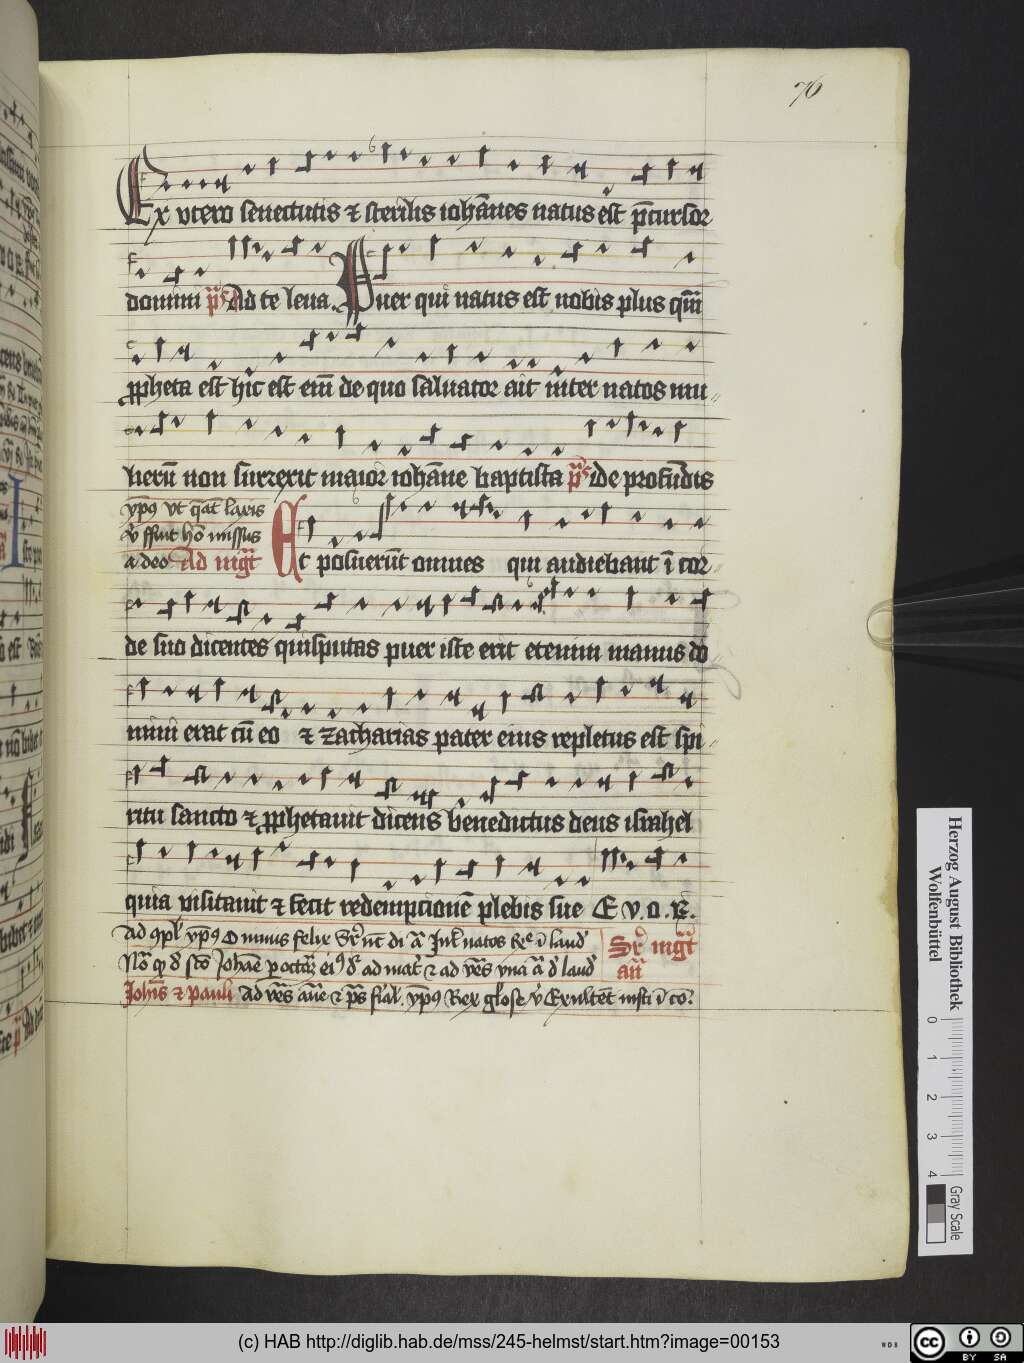 76
Ex vtero senectutis ⁊ sterilis ioha̅nes natus est p̅cursor
domini p̅s Ad te leua. Puer qui natus est nobis plus qua̅
ꝓpheta est hic est eni̅ de quo saluator ait inter natos mu
lieru̅ non surrexit maior ioha̅ne baptista p̅s de profu̅dis
ymp9 vt q̅at laxis
v̓ ffuit ho̅ missus
a deo Ad mg̅t Et posueru̅t omnes qui audiebant i̅ cor
de suo dicentes quis putas puer iste erit etenim manus do
mini erat cu̅ eo ⁊ zacharias pater eius repletus est spi
ritu sancto ⁊ ꝓphetauit dicens benedictus deus israhel
quia visitauit ⁊ fecit redempcione̅ plebis sue E v. O.
Ad yp̅9 O nimis felix natos i̅ laud
Joha̅e ad mat̓ ⁊ ad ve̅s vna a̅ laud
Joh̅is ⁊ pauli Ad ve̅s ⁊ p̅s yp̅9 Rex glōse v̓ Exulte̅t iusti i̅
Herzog August Bibliothek
Wolfenbüttel
0 1 2 3 4
Gray Scale
(c) HAB http://diglib.hab.de/mss/245-helmst/start.htm?image=00153
WDB
cc BY SA